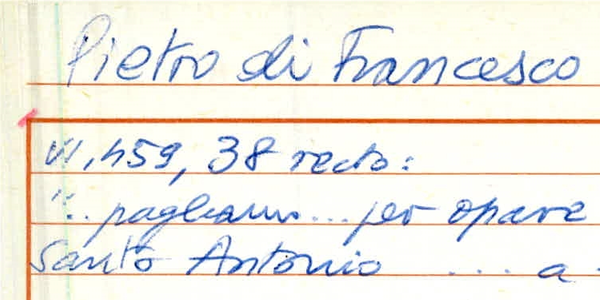 Pietro di Francesco
VI, 459, 38 recto:
"... pagliamo ... per opare
Santo Antonio .... a